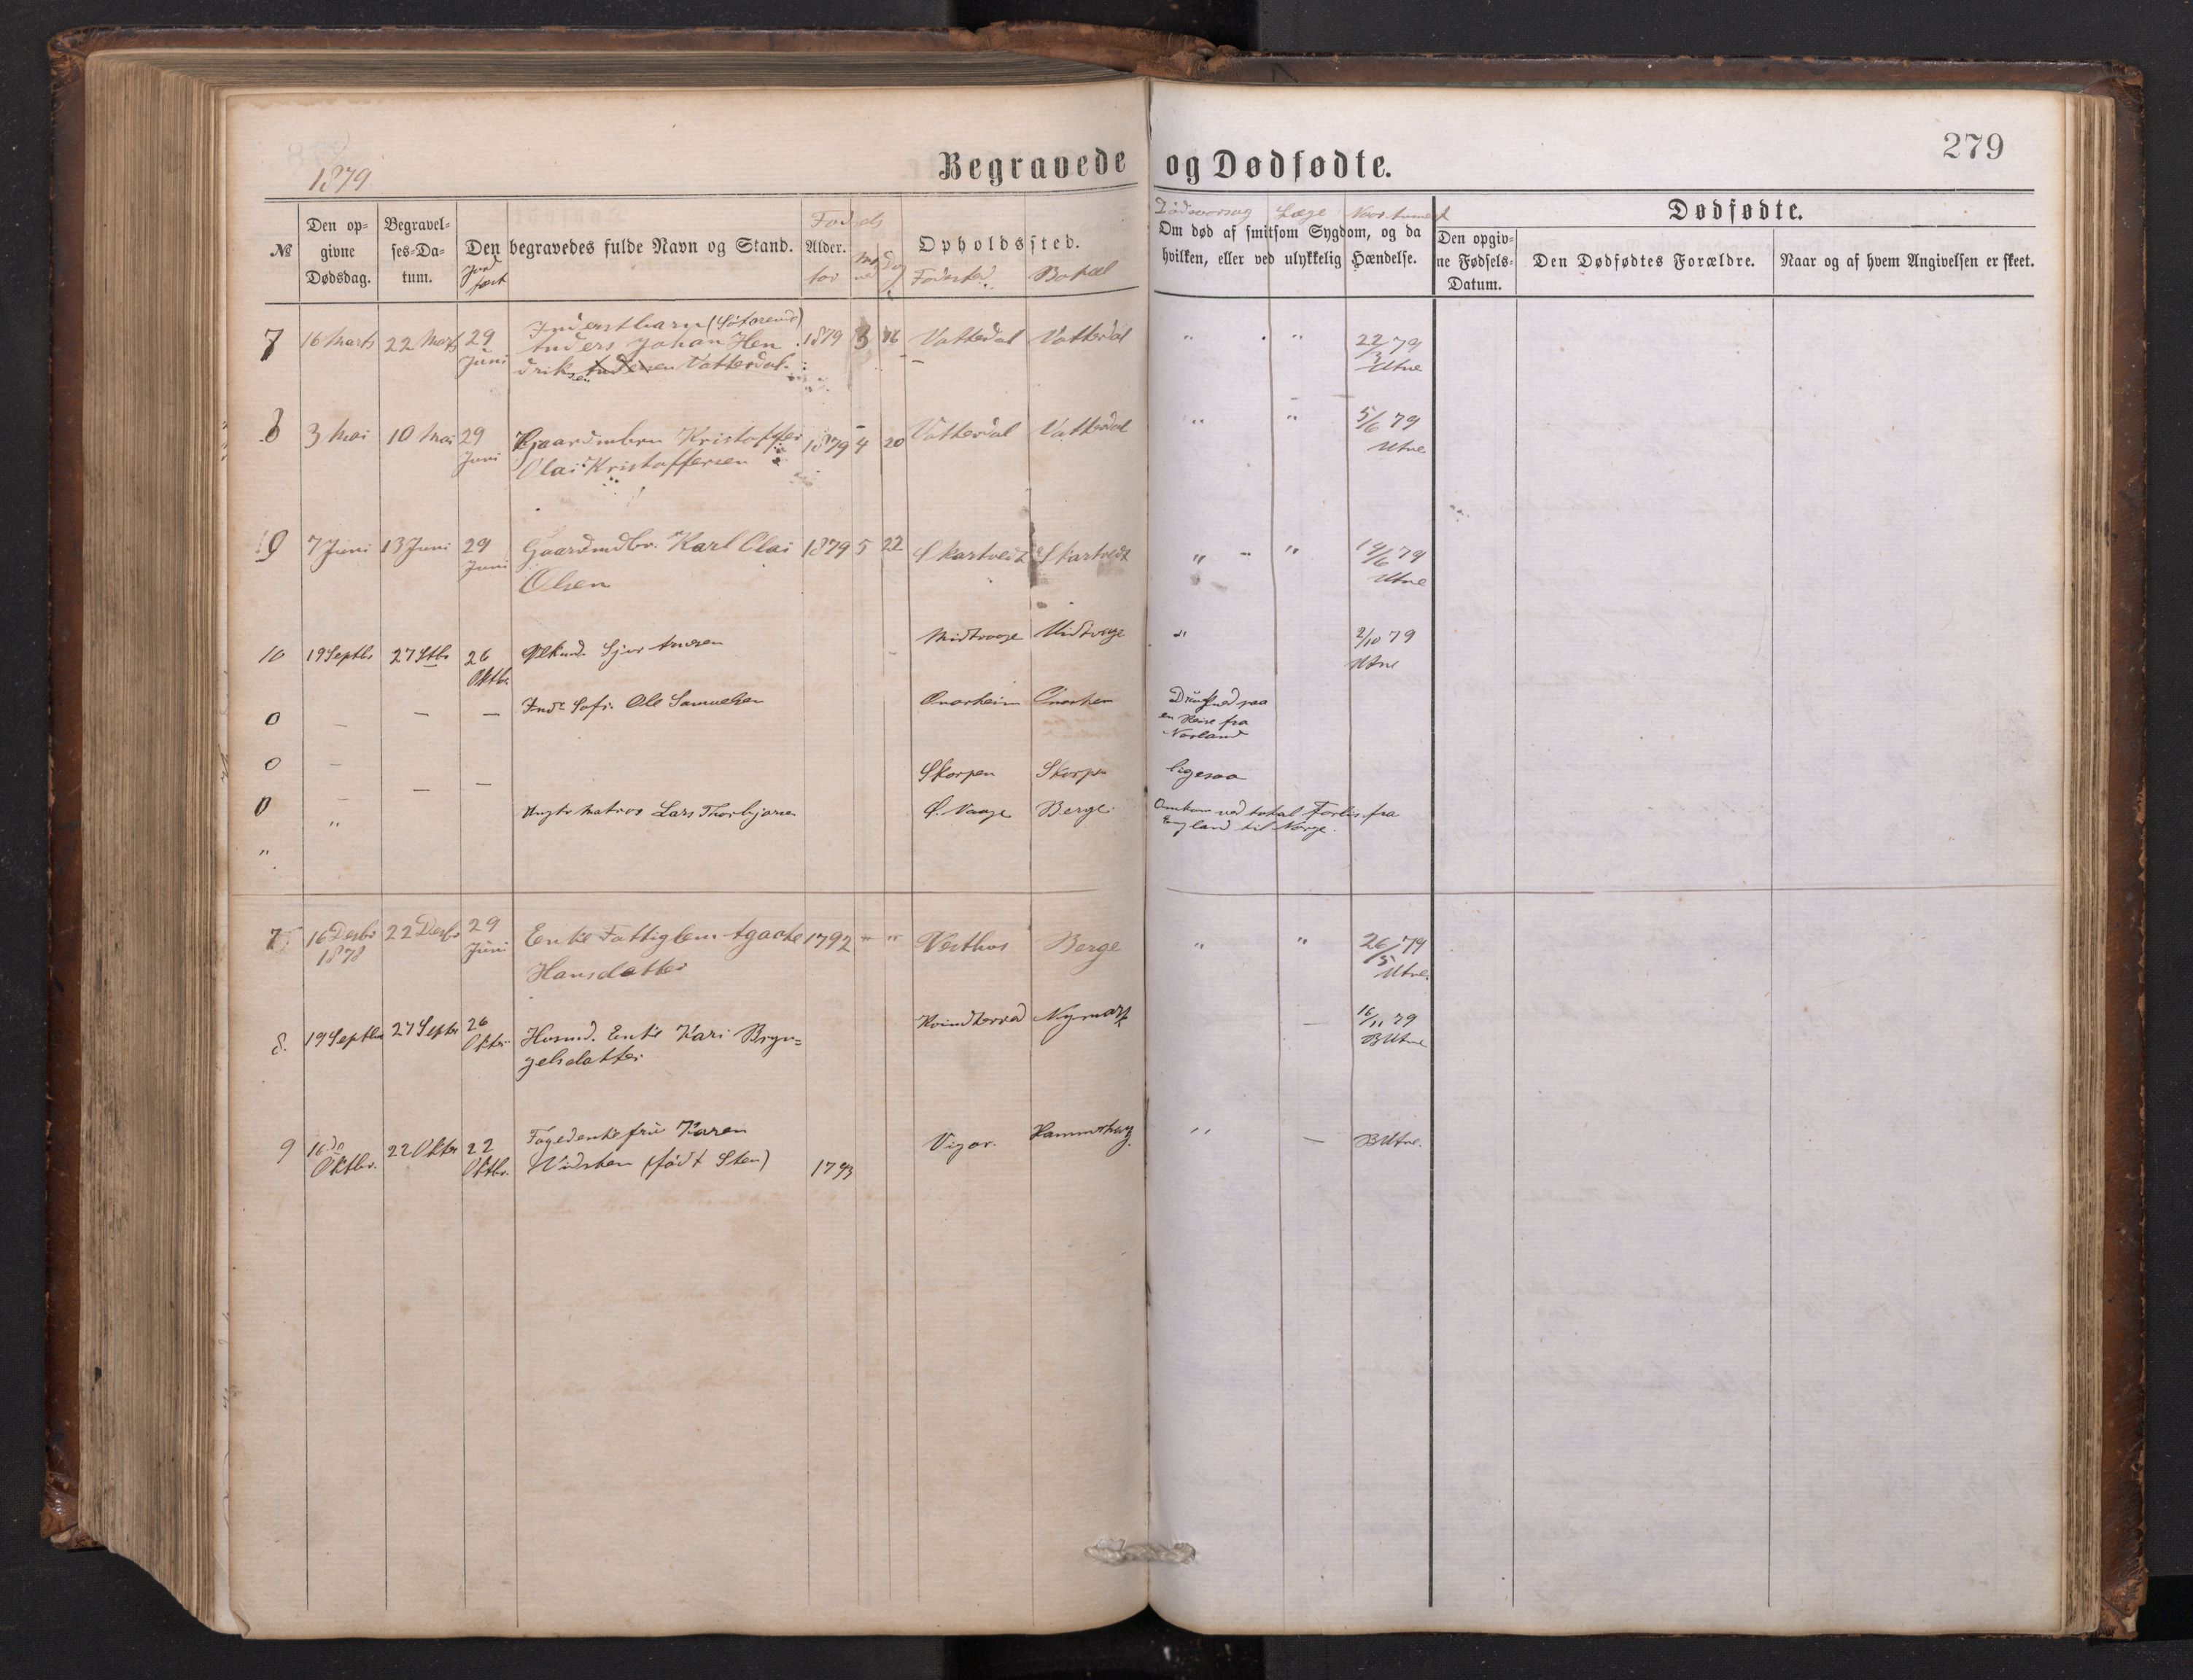 279
1879
Begravede og Dødfødte.
№
Den op=
givne
Dødsdag.
Begravel=
ses=Da=
tum.
Jord
fæst
Den begravedes fulde Navn og Stand.
Fødsels
Alder.
Dag
Opholdssted.
Fødested. Bopæl
Dødsaarsag Læge
Om død af smitsom Sygdom, og da
hvilken, eller ved ulykkelig Hændelse.
Dødfødte.
Den opgiv=
ne Fødsels=
Datum.
Den Dødfødtes Forældre.
Naar og af hvem Angivelsen er skeet.
7 16 Marts 22 Marts 29 Juni
Anders Johan Hen
drik Vatterdal
1879 3 16 Vatterdal Vatterdal " " 22/3 79
Utne
8 3 Mai 10 Mai 29 Juni
Kristoffer
Olai Kristoffersen
1879 4 20 Vatterdal Vatterdal " " 5/6 79
Utne
9 7 Juni 13 Juni 29 Juni
Gaardmdbr. Karl Olai
Olsen
1879 5 22 Skartvedt Skartvedt " " 14/6 79
Utne
10 19 Septbr 27 Stbr 26 Oktbr
Midtvaage Midtvage " 2/10 79
Utne
0 — — — Ole Samuelsen Onarheim Onarhem
Drukned paa
en Reise fra
Norland
0 — — — Skorpen Skorpen ligesaa
0 " Matros Lars Thorbjørnsen Ø. Vaage Berge
Omkom ved total Forlis fra
England til Norge.
"
7 16 Desbr
1878
22 Desbr 29 Juni
Enke Fattiglem Agaate
Hansdatter
1792 " " Vesthus Berge " " 26/5 79
Utne
8. 19 Septbr 27 Septbr 26 Oktbr
Husmd. Enke Kari Bryn=
gelsdatter
Kvindherred Nymark — 16/11 79
B Utne
9 16de
Oktbr.
22 Oktbr 22
Oktbr.
Fogedenke fru Karen
Vidsten (født Sten)
1793 " — B Utne.